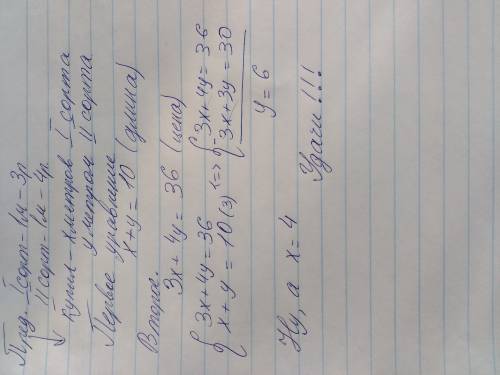 Пред. I сорт - 1м - 3р
II сорт - 1м - 4р.
Купил - x метров I сорта
y метров II сорта
Первое уравнение
x+y = 10 (длина)
Второе.
3x + 4y = 36 (цена)
{ 3x+4y=36 <=> { 3x+4y=36
x+y = 10 (3) - 3x+3y=30
y = 6
Ну, а x=4
Удачи!!!